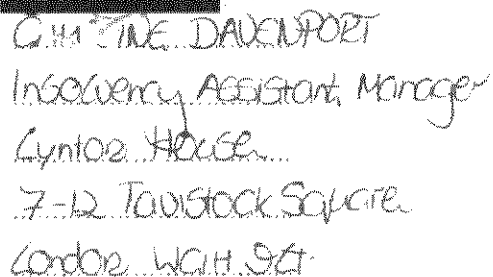 DAVENPORT
Insolvency Assistant Manager
Lynton House
7-12 Tavistock Square
London WC1H 9LT